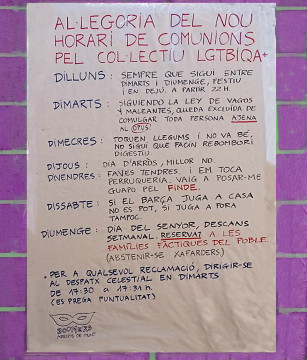 AL·LEGORIA DEL NOU
HORARI DE COMUNIONS
PEL COL·LECTIU LGTBIQA+
DILLUNS : SEMPRE QUE SIGUI ENTRE
DIMARTS I DIUMENGE, FESTIU
I EN DEJÚ. A PARTIR 22H.
DIMARTS : SIGUIENDO LA LEY DE VAGOS
Y MALEANTES, QUEDA EXCLUIDA DE
COMULGAR TODA PERSONA AJENA
AL OPUS
DIMECRES : TOQUEN LLEGUMS I NO VA BÉ,
NO SIGUI QUE FACIN REBOMBORI
DIGESTIU
DIJOUS : DIA D'ARRÒS, MILLOR NO.
DIVENDRES : FAVES TENDRES. I EM TOCA
PERRUQUERIA. VAIG A POSAR-ME
GUAPO PEL FINDE.
DISSABTE : SI EL BARÇA JUGA A CASA
NO ES POT, SI JUGA A FORA
TAMPOC.
DIUMENGE : DIA DEL SENYOR, DESCANS
SETMANAL. RESERVAT A LES
FAMÍLIES FÀCTIQUES DEL POBLE.
(ABSTENIR-SE XAFARDERS)
* PER A QUALSEVOL RECLAMACIÓ, DIRIGIR-SE
AL DESPATX CELESTIAL EN DIMARTS
DE 17:30 A 17:31 H.
(ES PREGA PUNTUALITAT)